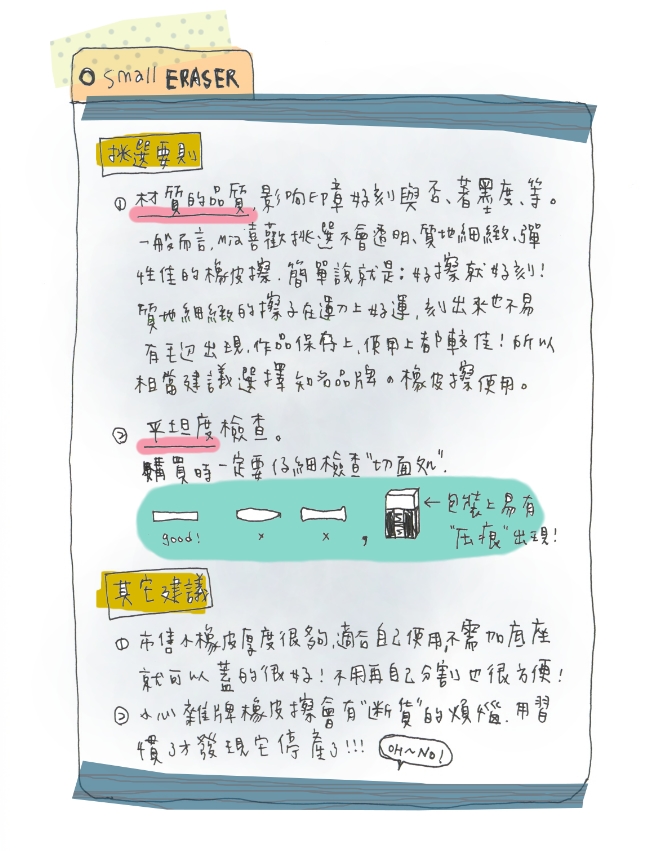 small ERASER
挑選要則
① 材質的品質影响印章好刻與否、著墨度、等。
一般而言，Mia喜歡挑選不會透明、質地細緻、彈
性佳的橡皮擦．簡單說就是：好擦就好刻！
質地細緻的擦子在運刀上好運，刻出來也不易
有毛边出現．作品保存上，使用上都較佳！所以
相當建議選擇知名品牌の橡皮擦使用。
② 平坦度檢查。
購買時一定要仔細檢查"切面処"．
good! x x , ←包裝上易有
"压痕"出現！
其它建議
① 市售小橡皮厚度很夠，適合自己使用，不需加底座
就可以蓋的很好！不用再自己分割也很方便！
② 小心雜牌橡皮擦會有"断貨"的煩惱．用習
慣了才發現它停產了!!!
OH~NO!